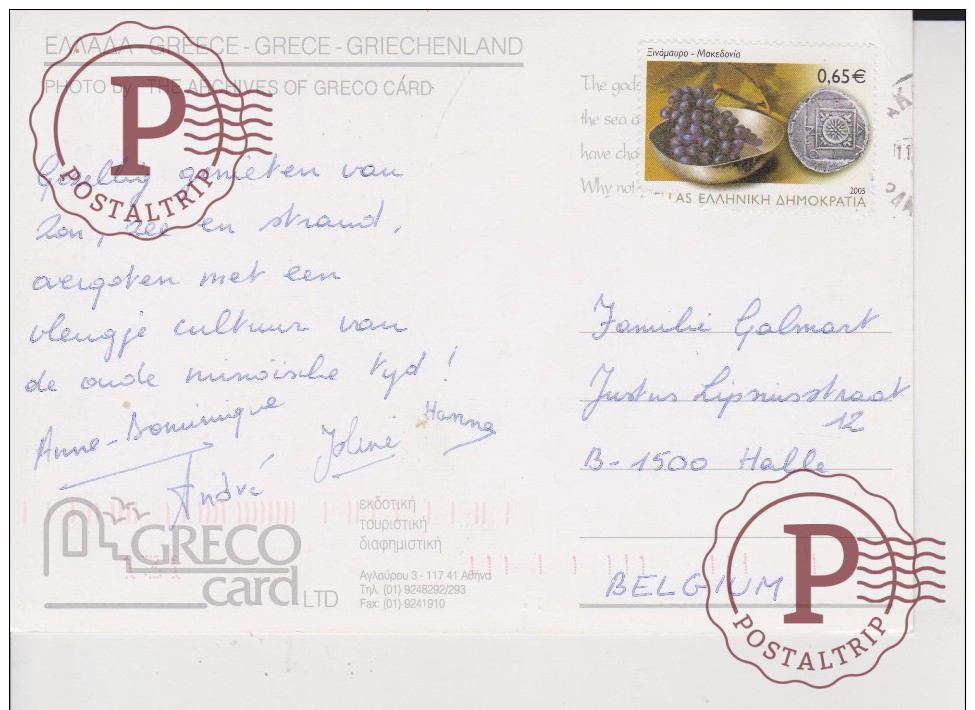 ΕΛΛΑΔΑ - GREECE - GRECE - GRIECHENLAND
PHOTO by THE ARCHIVES OF GRECO CARD
P
POSTALTRIP
Gezellig genieten van
zon, zee en strand,
overgoten met een
vleugje cultuur van
de oude minoïsche tijd!
Anne-Dominique
André
Hanna
GRECO
card LTD
εκδοτική
τουριστική
διαφημιστική
Αγλαύρου 3 - 117 41 Αθήνα
Τηλ. (01) 9248292/293
Fax: (01) 9241910
The gods
the sea a
have cho
Why not
Ξινόμαυρο - Μακεδονία
0,65€
2005
HELLAS ΕΛΛΗΝΙΚΗ ΔΗΜΟΚΡΑΤΙΑ
Familie Galmart
Justus Lipsiusstraat
12
B-1500 Halle
BELGIUM
P
POSTALTRIP